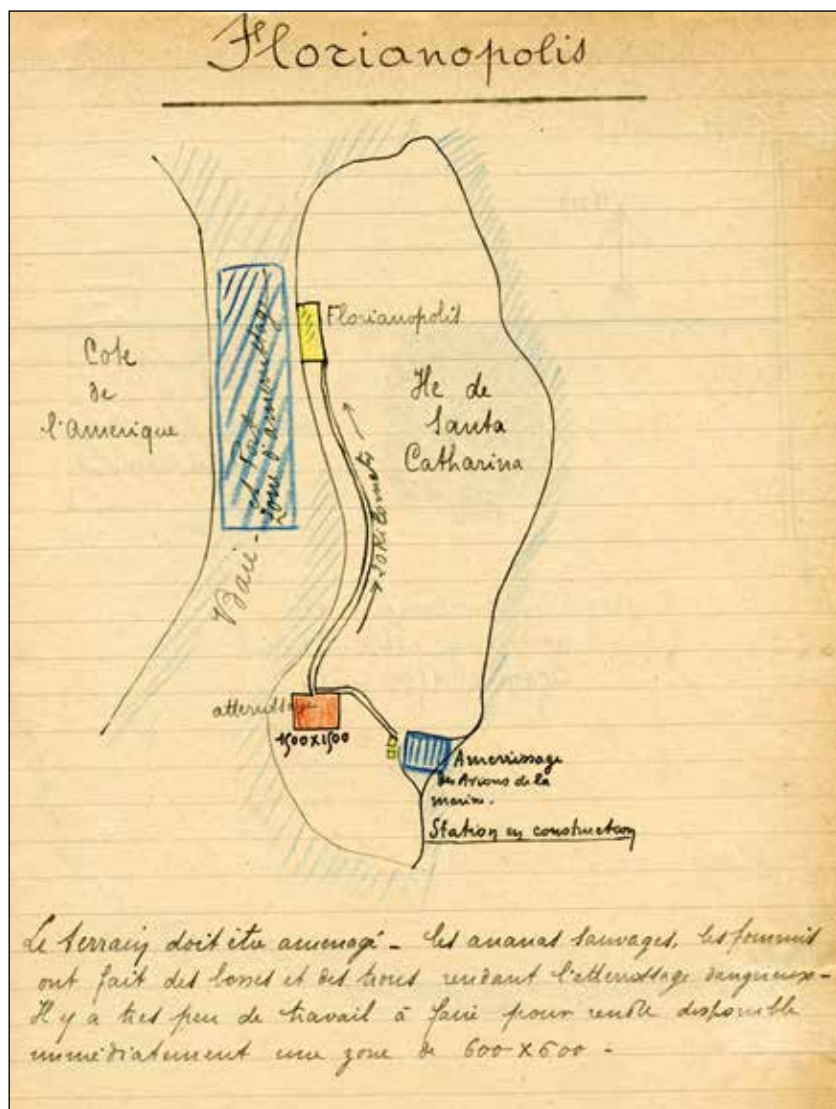 Florianopolis
Cote
de
l'Amerique
Baie -
et Port
zone d'amerrissage
Florianopolis
Ile de
Santa
Catharina
atterrissage
1500x1500
Amerrissage
des Avions de la
marine.
Station en construction
Le terrain doit être amenagé - les ananas sauvages, les fourmis
ont fait des bosses et des trous rendant l'atterrissage dangereux -
Il y a tres peu de travail à faire pour rendre disponible
immédiatement une zone de 600 x 600 -